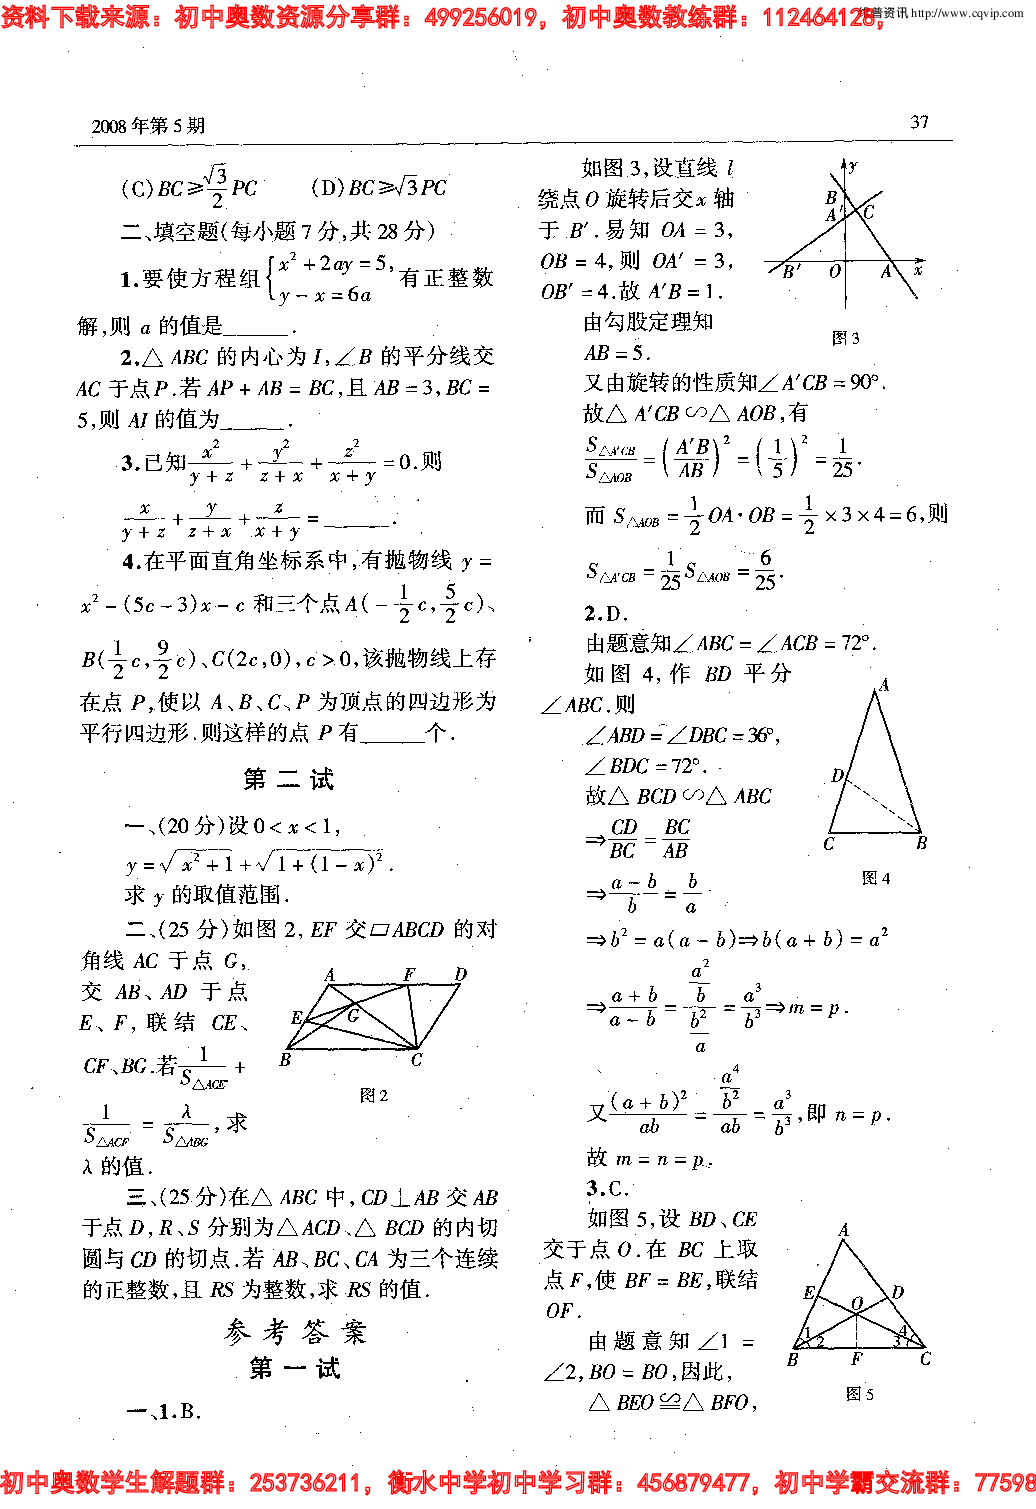 资料下载来源：初中奥数资源分享群：499256019，初中奥数教练群：112464128，
维普资讯 http://www.cqvip.com
2008 年第 5 期
37
(C) BC ≥ √3/2 PC (D) BC ≥ √3 PC
二、填空题(每小题 7 分,共 28 分)
1.要使方程组 { x² + 2ay = 5, y - x = 6a 有正整数
解,则 a 的值是______.
2.△ ABC 的内心为 I,∠B 的平分线交
AC 于点 P.若 AP + AB = BC,且 AB = 3,BC =
5,则 AI 的值为______.
3.已知 x²/(y + z) + y²/(z + x) + z²/(x + y) = 0.则
x/(y + z) + y/(z + x) + z/(x + y) = ______.
4.在平面直角坐标系中,有抛物线 y =
x² - (5c - 3)x - c 和三个点 A( - 1/2 c, 5/2 c)、
B(1/2 c, 9/2 c)、C(2c,0),c > 0,该抛物线上存
在点 P,使以 A、B、C、P 为顶点的四边形为
平行四边形.则这样的点 P 有______个.
第 二 试
一、(20 分)设 0 < x < 1,
y = √(x² + 1) + √(1 + (1 - x)²).
求 y 的取值范围.
二、(25 分)如图 2, EF 交 ▱ABCD 的对
角线 AC 于点 G,
交 AB、AD 于点
E、F, 联结 CE、
CF、BG.若 1/S△ACE +
1/S△ACF = λ/S△ABG ,求
λ 的值.
A F D
E G
B C
图 2
三、(25 分)在△ ABC 中, CD⊥AB 交 AB
于点 D,R、S 分别为△ ACD、△ BCD 的内切
圆与 CD 的切点.若 AB、BC、CA 为三个连续
的正整数,且 RS 为整数,求 RS 的值.
参 考 答 案
第 一 试
一、1.B.
如图 3,设直线 l
绕点 O 旋转后交 x 轴
于 B′.易知 OA = 3,
OB = 4, 则 OA′ = 3,
OB′ = 4.故 A′B = 1.
由勾股定理知
AB = 5.
y
B
A′ C
B′ O A x
图 3
又由旋转的性质知∠A′CB = 90°.
故△ A′CB ∽△ AOB,有
S△A′CB/S△AOB = (A′B/AB)² = (1/5)² = 1/25.
而 S△AOB = 1/2 OA·OB = 1/2 × 3 × 4 = 6,则
S△A′CB = 1/25 S△AOB = 6/25.
2.D.
由题意知∠ABC = ∠ACB = 72°.
如 图 4, 作 BD 平 分
∠ABC.则
∠ABD = ∠DBC = 36°,
∠BDC = 72°.
故△ BCD ∽△ ABC
⇒ CD/BC = BC/AB
⇒ (a - b)/b = b/a
A
D
C B
图 4
⇒ b² = a(a - b) ⇒ b(a + b) = a²
⇒ (a + b)/(a - b) = (a²/b)/(b²/a) = a³/b³ ⇒ m = p.
又 (a + b)²/ab = (a⁴/b²)/ab = a³/b³ ,即 n = p.
故 m = n = p.
3.C.
如图 5,设 BD、CE
交于点 O.在 BC 上取
点 F,使 BF = BE,联结
OF.
由 题 意 知 ∠1 =
∠2, BO = BO,因此,
△ BEO ≌△ BFO,
A
E O D
1 2 3 4
B F C
图 5
初中奥数学生解题群：253736211，衡水中学初中学习群：456879477，初中学霸交流群：77598